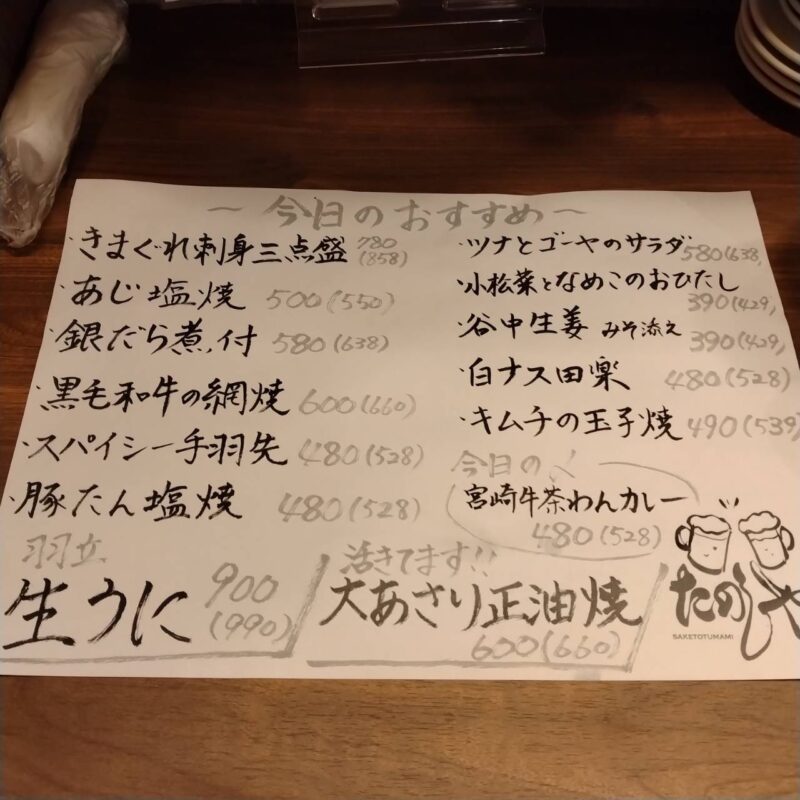 ～今日のおすすめ～
・きまぐれ刺身三点盛 780(858)
・あじ塩焼 500(550)
・銀だら煮付 580(638)
・黒毛和牛の網焼 600(660)
・スパイシー手羽先 480(528)
・豚たん塩焼 480(528)
・ツナとゴーヤのサラダ 580(638)
・小松菜となめこのおひたし 390(429)
・谷中生姜 みそ添え 390(429)
・白ナス田楽 480(528)
・キムチの玉子焼 490(539)
今日の〆
宮崎牛茶わんカレー
480(528)
羽立
生うに 900(990)
活きてます!!
大あさり正油焼
600(660)
たのしや
SAKETOTUMAMI